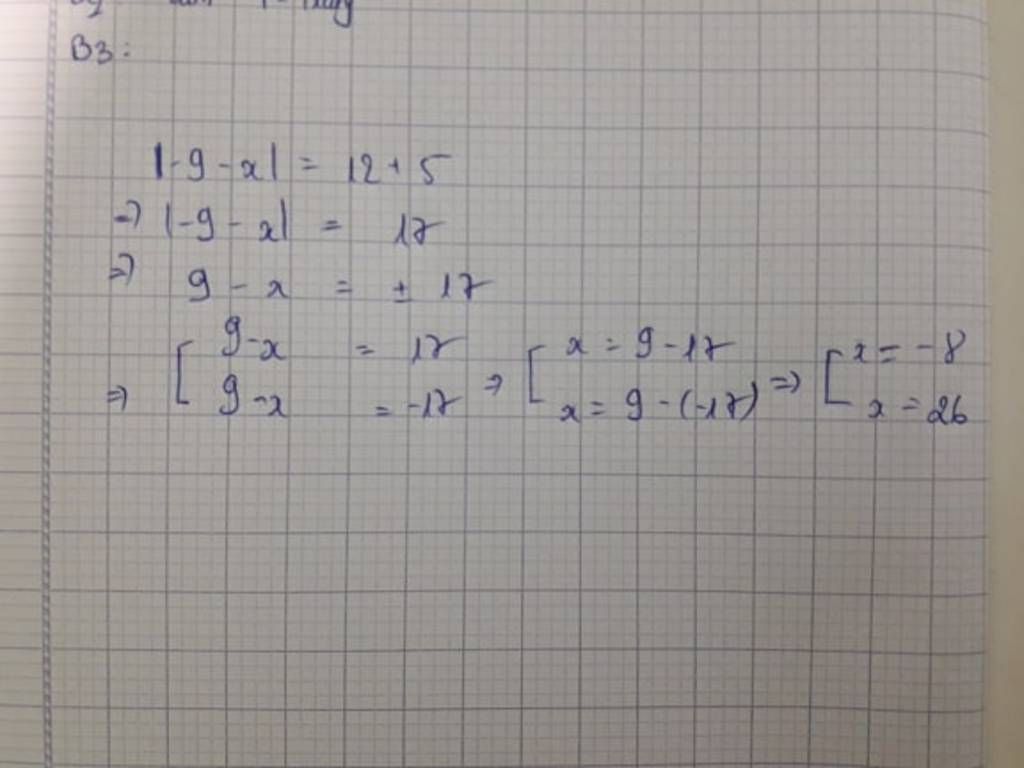 B3:
|-9-x| = 12+5
=> |-9-x| = 17
=> 9-x = ± 17
=> [ 9-x = 17 => [ x = 9-17 => [ x = -8
9-x = -17 x = 9-(-17) x = 26